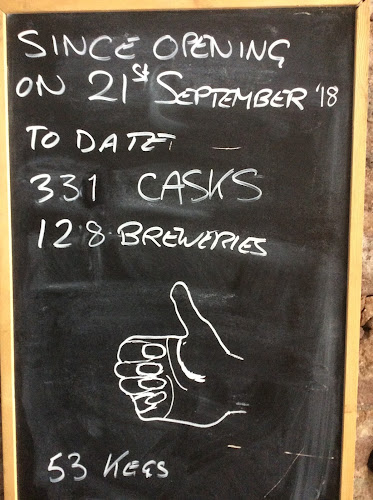 SINCE OPENING
ON 21st SEPTEMBER '18
TO DATE
331 CASKS
128 BREWERIES
53 KEGS